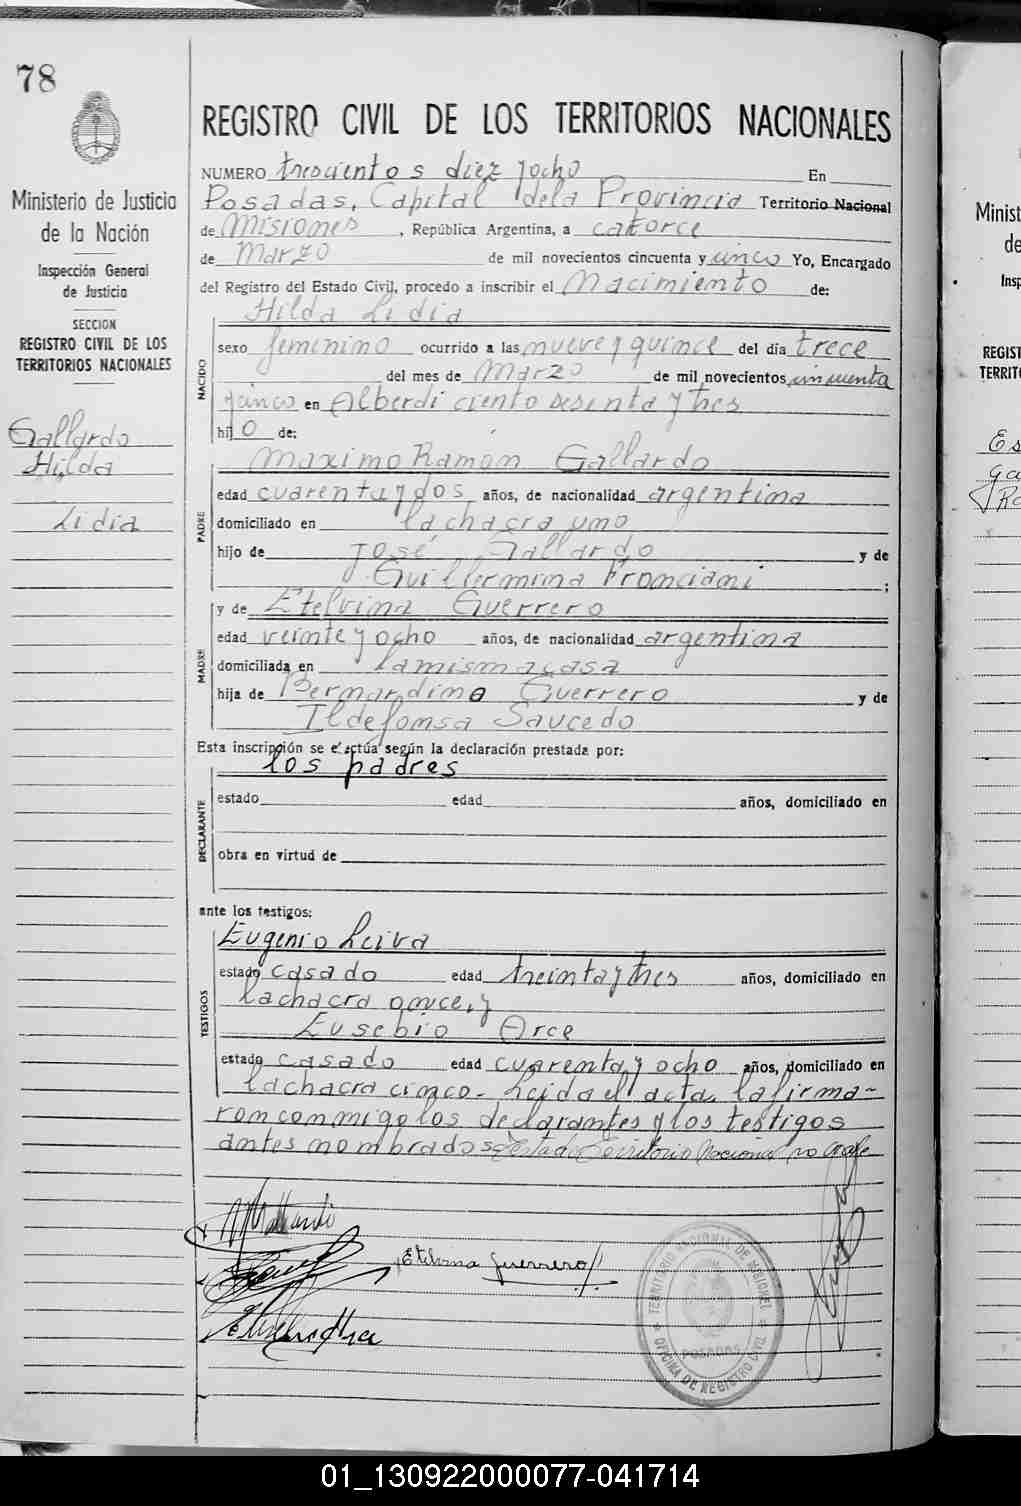 78
Ministerio de Justicia
de la Nación
Inspección General
de Justicia
SECCION
REGISTRO CIVIL DE LOS
TERRITORIOS NACIONALES
Gallardo
Hilda
Lidia
REGISTRO CIVIL DE LOS TERRITORIOS NACIONALES
NUMERO trescientos diez y ocho En
Posadas, Capital de la Provincia Territorio Nacional
de Misiones, República Argentina, a catorce
de Marzo de mil novecientos cincuenta y cinco Yo, Encargado
del Registro del Estado Civil, procedo a inscribir el Nacimiento de:
Hilda Lidia
NACIDO
sexo femenino ocurrido a las nueve y quince del día trece
del mes de Marzo de mil novecientos cincuenta
y cinco en Alberdi ciento sesenta y tres
hij o de:
PADRE
Maximo Ramón Gallardo
edad cuarenta y dos años, de nacionalidad argentina
domiciliado en la chacra uno
hijo de José Gallardo y de
Guillermina ;
MADRE
y de Etelvina Guerrero
edad veinte y ocho años, de nacionalidad argentina
domiciliada en la misma casa
hija de Bernardino Guerrero y de
Ildefonsa Saucedo
Esta inscripción se efectúa según la declaración prestada por:
los padres
DECLARANTE
estado edad años, domiciliado en
obra en virtud de
ante los testigos:
TESTIGOS
Eugenio Leiva
estado casado edad treinta y tres años, domiciliado en
la chacra once, y
Eusebio Arce
estado casado edad cuarenta y ocho años, domiciliado en
la chacra cinco. Leida el acta, la firma-
ron conmigo los declarantes y los testigos
antes nombrados Territorio Nacional no vale
Etelvina Guerrero
TERRITORIO NACIONAL DE MISIONES
POSADAS
OFICINA DE REGISTRO CIVIL
Minist
de
Insp
REGIST
TERRIT
Es
Ga
Ra
01_130922000077-041714